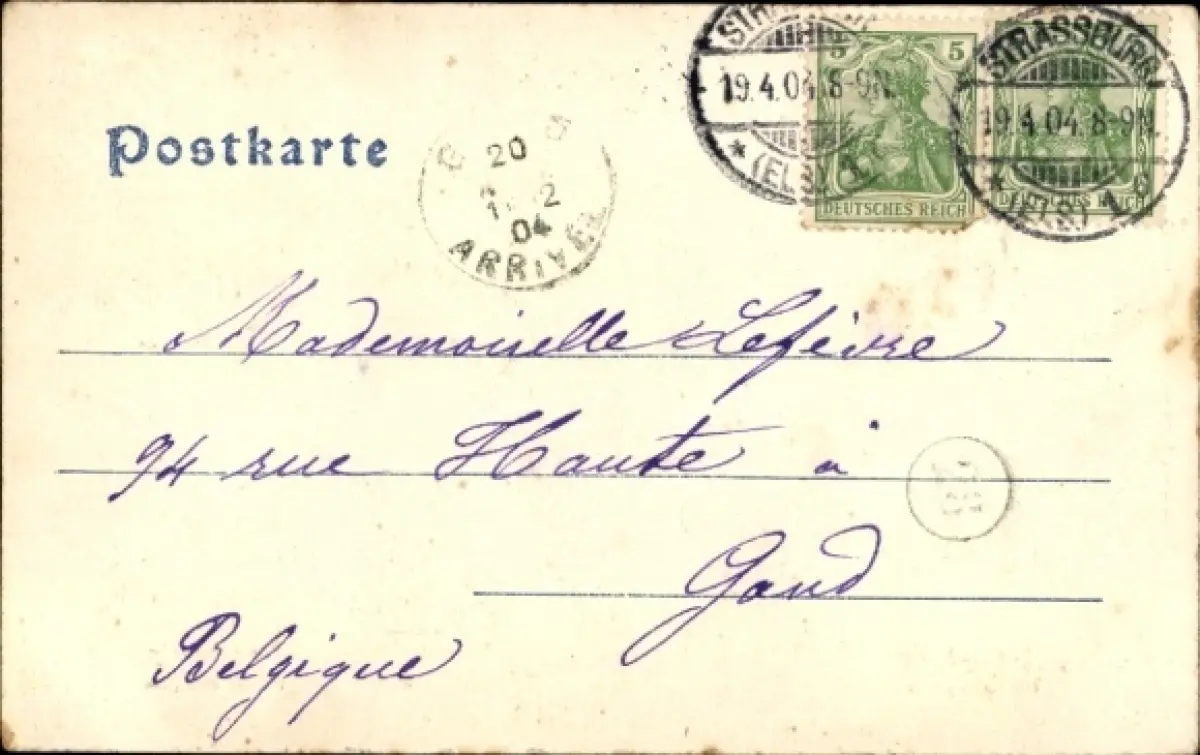 Postkarte
STRASSBURG
19.4.04. 8-9N.
(ELS.) 1.
5 5
DEUTSCHES REICH
STRASSBURG
19.4.04. 8-9N.
(ELS.) 1 c
DEUTSCHES REICH
20
04
ARRIVÉE
Mademoiselle Lefèvre
94 rue Haute à
Gand
Belgique